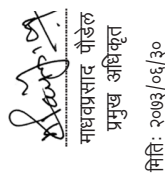 माधवप्रसाद पौडेल
प्रमुख अधिकृत
मितिः २०७३/०६/३०